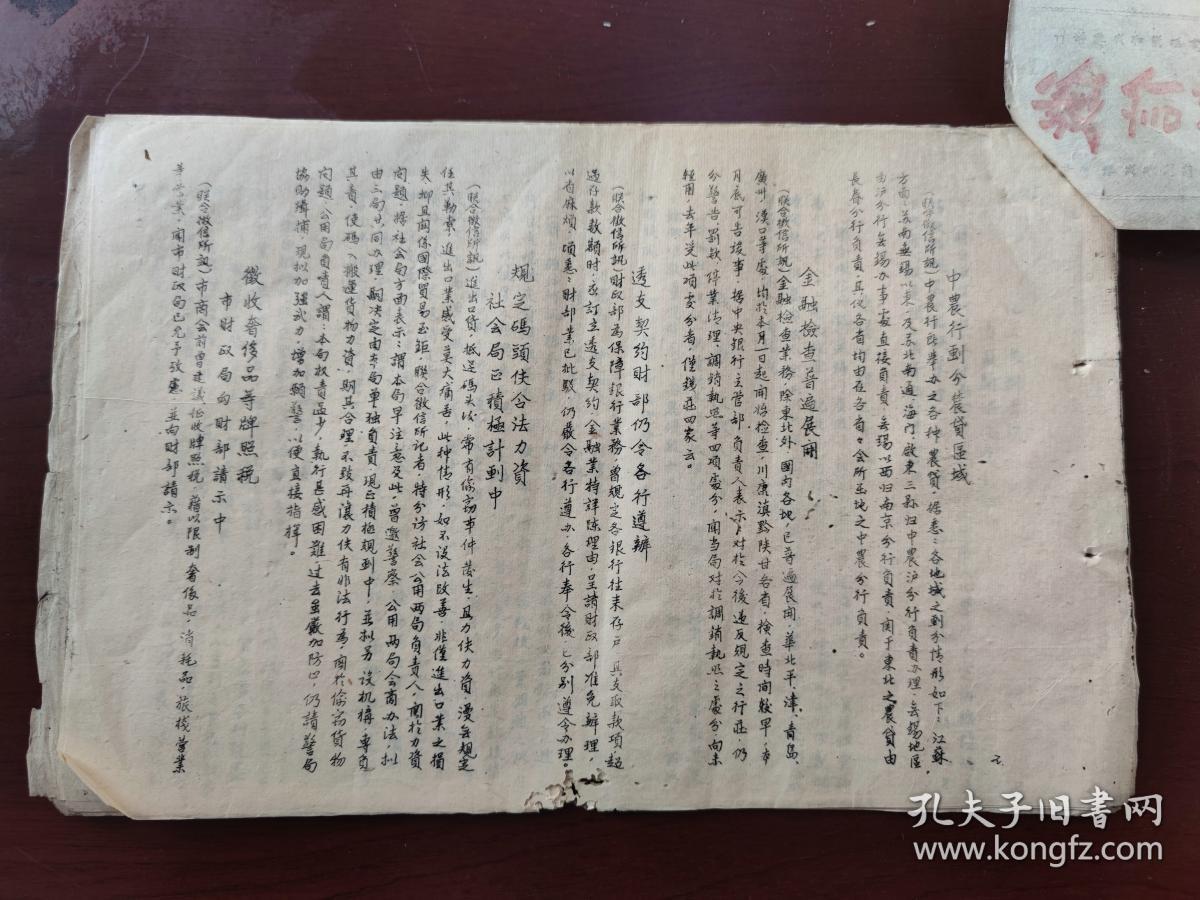 中農行劃分農貸區域
(聯合徵信所訊)中農行既舉办之各种農貸,據悉:各地域之劃分情形如下:江蘇
方面,苏南無錫以東,及苏北南通,海門,啟東三縣归中農沪分行負責办理,無錫地區,
由沪分行無錫办事處直接負責,無錫以西归南京分行負責,関于東北之農貸由
長春分行負責,其他各省均由在各省省会所在地之中農分行負責。
金融檢查普遍展開
(聯合徵信所訊)金融檢查業務,除東北外,國内各地,已普遍展開,華北平,津,青島,
廣州,漢口等處,均於本月一日起開始檢查,川康滇黔陕甘各省,檢查時間較早,本
月底可告竣事,據中央銀行主管部負責人表示,对於今後違反規定之行莊,仍
分警告罰款,停業清理,調銷執照等四項處分,聞当局对於調銷執照之處分,向未
輕用,去年受此項處分者,僅錢莊四家云。
透支契約財部仍令各行遵辦
(聯合徵信所訊)財政部為保障銀行業務,曾規定各銀行往来存戶,其支取款項超
過存款数額時,应訂立透支契約,金融業特詳陈理由,呈請財政部准免辦理,
以省麻煩,頃悉:財部業已批駁,仍嚴令各行遵办,各行奉令後,已分别遵令办理。
規定碼頭伕合法力資
社会局正積極計劃中
(聯合徵信所訊)進出口貨,抵達碼头後,常有偷窃事件發生,且力伕力資,漫無規定
任其勒索,進出口業感受莫大痛苦,此种情形,如不设法改善,非僅進出口業之損
失,抑且関係國際貿易至鉅,聯合徵信所记者,特分访社会公用兩局負責人,関於力資
问題,据社会局方面表示:謂本局早注意及此,曾邀警察,公用兩局会商办法,拟
由三局共同办理,嗣决定由本局單独負責,現正積極规劃中,並拟另设机構,專负
其責,使碼头搬運貨物力資,期其合理,不致再讓力伕有非法行為,関於偷窃貨物
问題,公用局負責人謂:本局权責區少,執行甚感困難,过去虽嚴加防止,仍請警局
協助缉捕,現拟加强武力,增加頼警,以便直接指揮。
徵收奢侈品等牌照税
市財政局向財部請示中
(聯合徵信所訊)市商会前曾建議征收牌照税,藉以限制奢侈品,消耗品,旅棧營業
等营業,聞市財政局已允予攷慮,並向財部請示。
孔夫子旧书网
www.kongfz.com